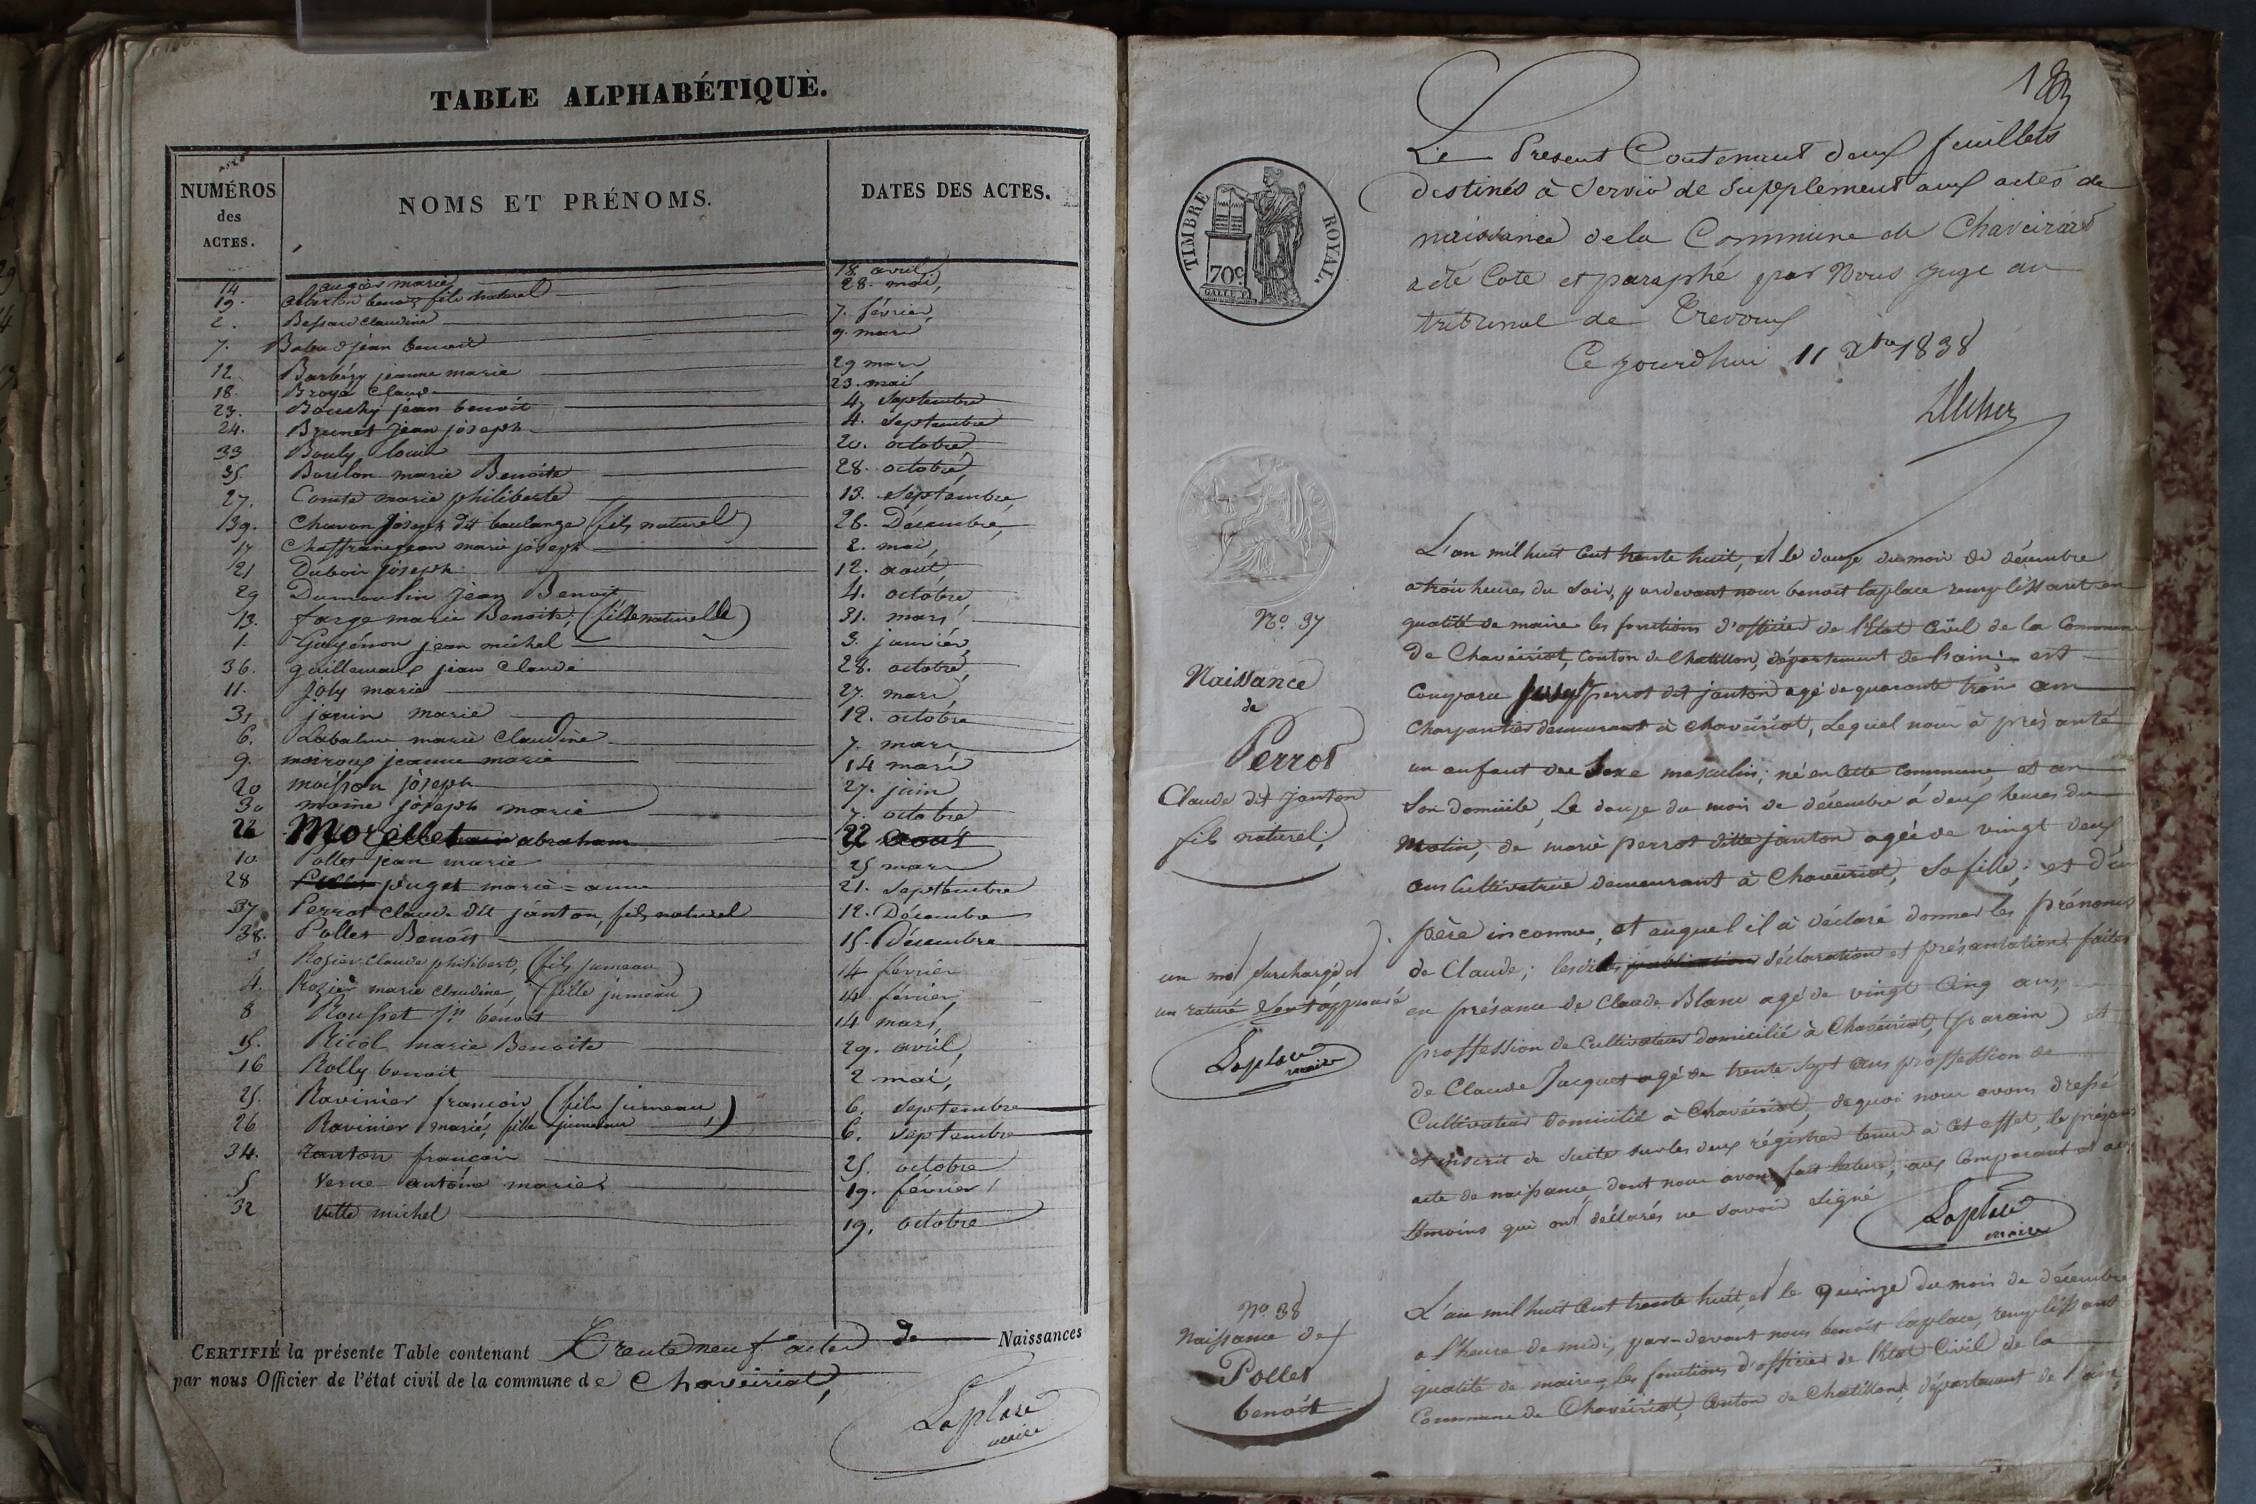 TABLE ALPHABÉTIQUE.
NUMÉROS des ACTES. NOMS ET PRÉNOMS. DATES DES ACTES.
14 marie 18 avril
19. benoit fils naturel 28. mai,
2. Bessard claudine 7. février,
7. jean benoit 9. mars
12. jeanne marie 29 mars
18. Broyé Claude 23. mai
23. Bouchy jean benoit 4, septembre
24. Brunet jean joseph 4. septembre
33 Bouly louis 20. octobre
35. Barilon marie Benoite 28. octobre,
27. Comte marie philiberte 13. septembre,
39. Chavan joseph dit boulange (fils naturel) 26. Décembre,
17 jean marie joseph 2. mai,
21 Dubois joseph 12. août
29 Dumoulin jean Benoit 4. octobre
13. farge marie Benoite, (fille naturelle) 31. mars
1. Guyénon jean michel 3. janvier,
36. guillemaux jean claude 28. octobre,
11. joly marie 27. mars,
31 janin marie 12. octobre
6. Labalme marie Claudine 7. mars
9. moiroux jeanne marie 14 mars
20 moisson joseph 27. juin
30 moine joseph marie 7. octobre
22 Morellet abraham 22 août
10 Pollet jean marie 25 mars
28 puget marie=anne 21. septembre
37 Perrot claude dit janton, fils naturel 12. Décembre
38. Pollet Benoit 15. Décembre
3 Rozier claude philibert, (fils jumeau) 14 février
4. Rozier marie claudine, (fille jumeau) 14. février,
8 Rousset jn benoit 14 mars,
15. Ricol marie Benoite 29. avril,
16 Rolly benoit 2 mai,
25. Ravinier françois (fils jumeau) 6. septembre
26 Ravinier marie, fille jumeau 6. septembre
34. Tanton françois 25. octobre
5 Verne antoine marie 19. février
32 Vette michel 19, octobre
CERTIFIÉ la présente Table contenant Trente neuf actes de Naissances
par nous Officier de l'état civil de la commune de Chaveiriat,
Laplace
maire
183
TIMBRE ROYAL.
70c.
Le Present Contenant deux feuillets
destinés à servir de supplement aux actes de
naissance dela Commune de Chaveiriat
a été Coté et paraphé par Nous juge au
tribunal de Trevoux
Ce jourdhui 11 Xbre 1838
L'an mil huit cent trente huit, et le douze du mois de décembre
a trois heures du soir, pardevant nous benoit laplace remplissant en
qualité de maire les fonctions d'officier de l'état Civil de la Commune
de Chavéiriat, Conton de Chatillon, département de l'ain; est
Comparu perrot dit janton agé de quarante trois ans
Charpentier demeurant à Chavéiriat, Lequel nous à présenté
un enfant du Sexe masculin; né en cette commune, et en
Son domicile, Le douze du mois de décembre à deux heures du
Matin, de marie perrot ditte janton agée de vingt deux
ans Cultivatrice demeurant à Chavéiriat, Sa fille; et d'un
père inconnu, et auquel il à déclaré donner les prénoms
de Claude; lesdites publication déclaration et présentation faites
en présance de Claude Blanc agé de vingt Cinq ans,
proffession de Cultivateur domicilié à Chavéiriat, (parain) et
de Claude Jacquet agé de trente sept ans proffession de
Cultivateur domicilié à Chavéiriat, dequoi nous avons dressé
et inscrit de suite sur les deux régistres tenus à cet effet, le présent
acte de naissance dont nous avons fait lecture, aux Comparant et aux
témoins qui ont déclarés ne savoir signé
Laplace
maire
No. 37
Naissance
de
Perrot
Claude dit janton
fils naturel;
un mot surchargé et
un raturé sont approuvé
Laplace
maire
No. 38
Naissance de
Pollet
benoit
L'an mil huit cent trente huit, et le quinze du mois de décembre
a l'heure de midi, par-devant nous benoit laplace, remplissant
qualité de maire, les fonctions d'officier de l'état Civil de la
Commune de Chavéiriat, Conton de Chatillon, département de l'ain,